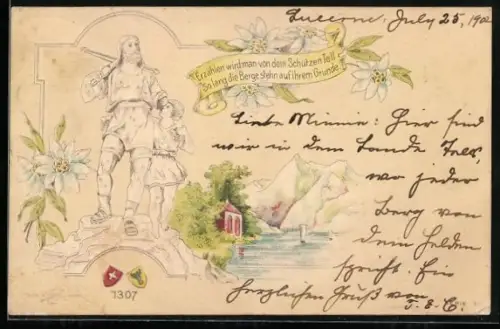 Lucerne, July 25, 190
Erzählen wird man von dem Schützen Tell
So lang die Berge stehn auf ihrem Grunde.
Liebe Minnie: Hier sind
wir in dem Lande Tells,
wo jeder
Berg von
dem Helden
spricht. Ein
herzlichen Gruß von
1307